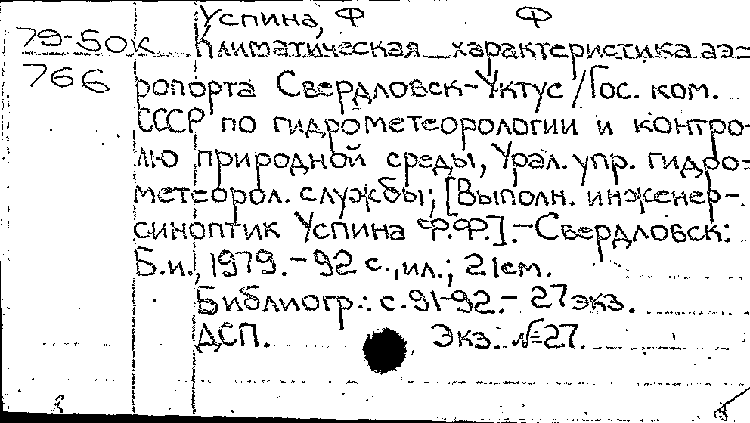 Успина, Ф Ф
79-50к Климатическая характеристика аэ=
766 ропорта Свердловск-Уктус/Гос. ком.
СССР по гидрометеорологии и контро-
лю природной среды, Урал. упр. гидро=
метеорол. службы; [Выполн. инженер-
синоптик Успина Ф.Ф.].-Свердловск:
Б.и., 1979.-92 с., ил.; 21см.
Библиогр.: с.91-92.- 27экз.
ДСП. Экз. №27.